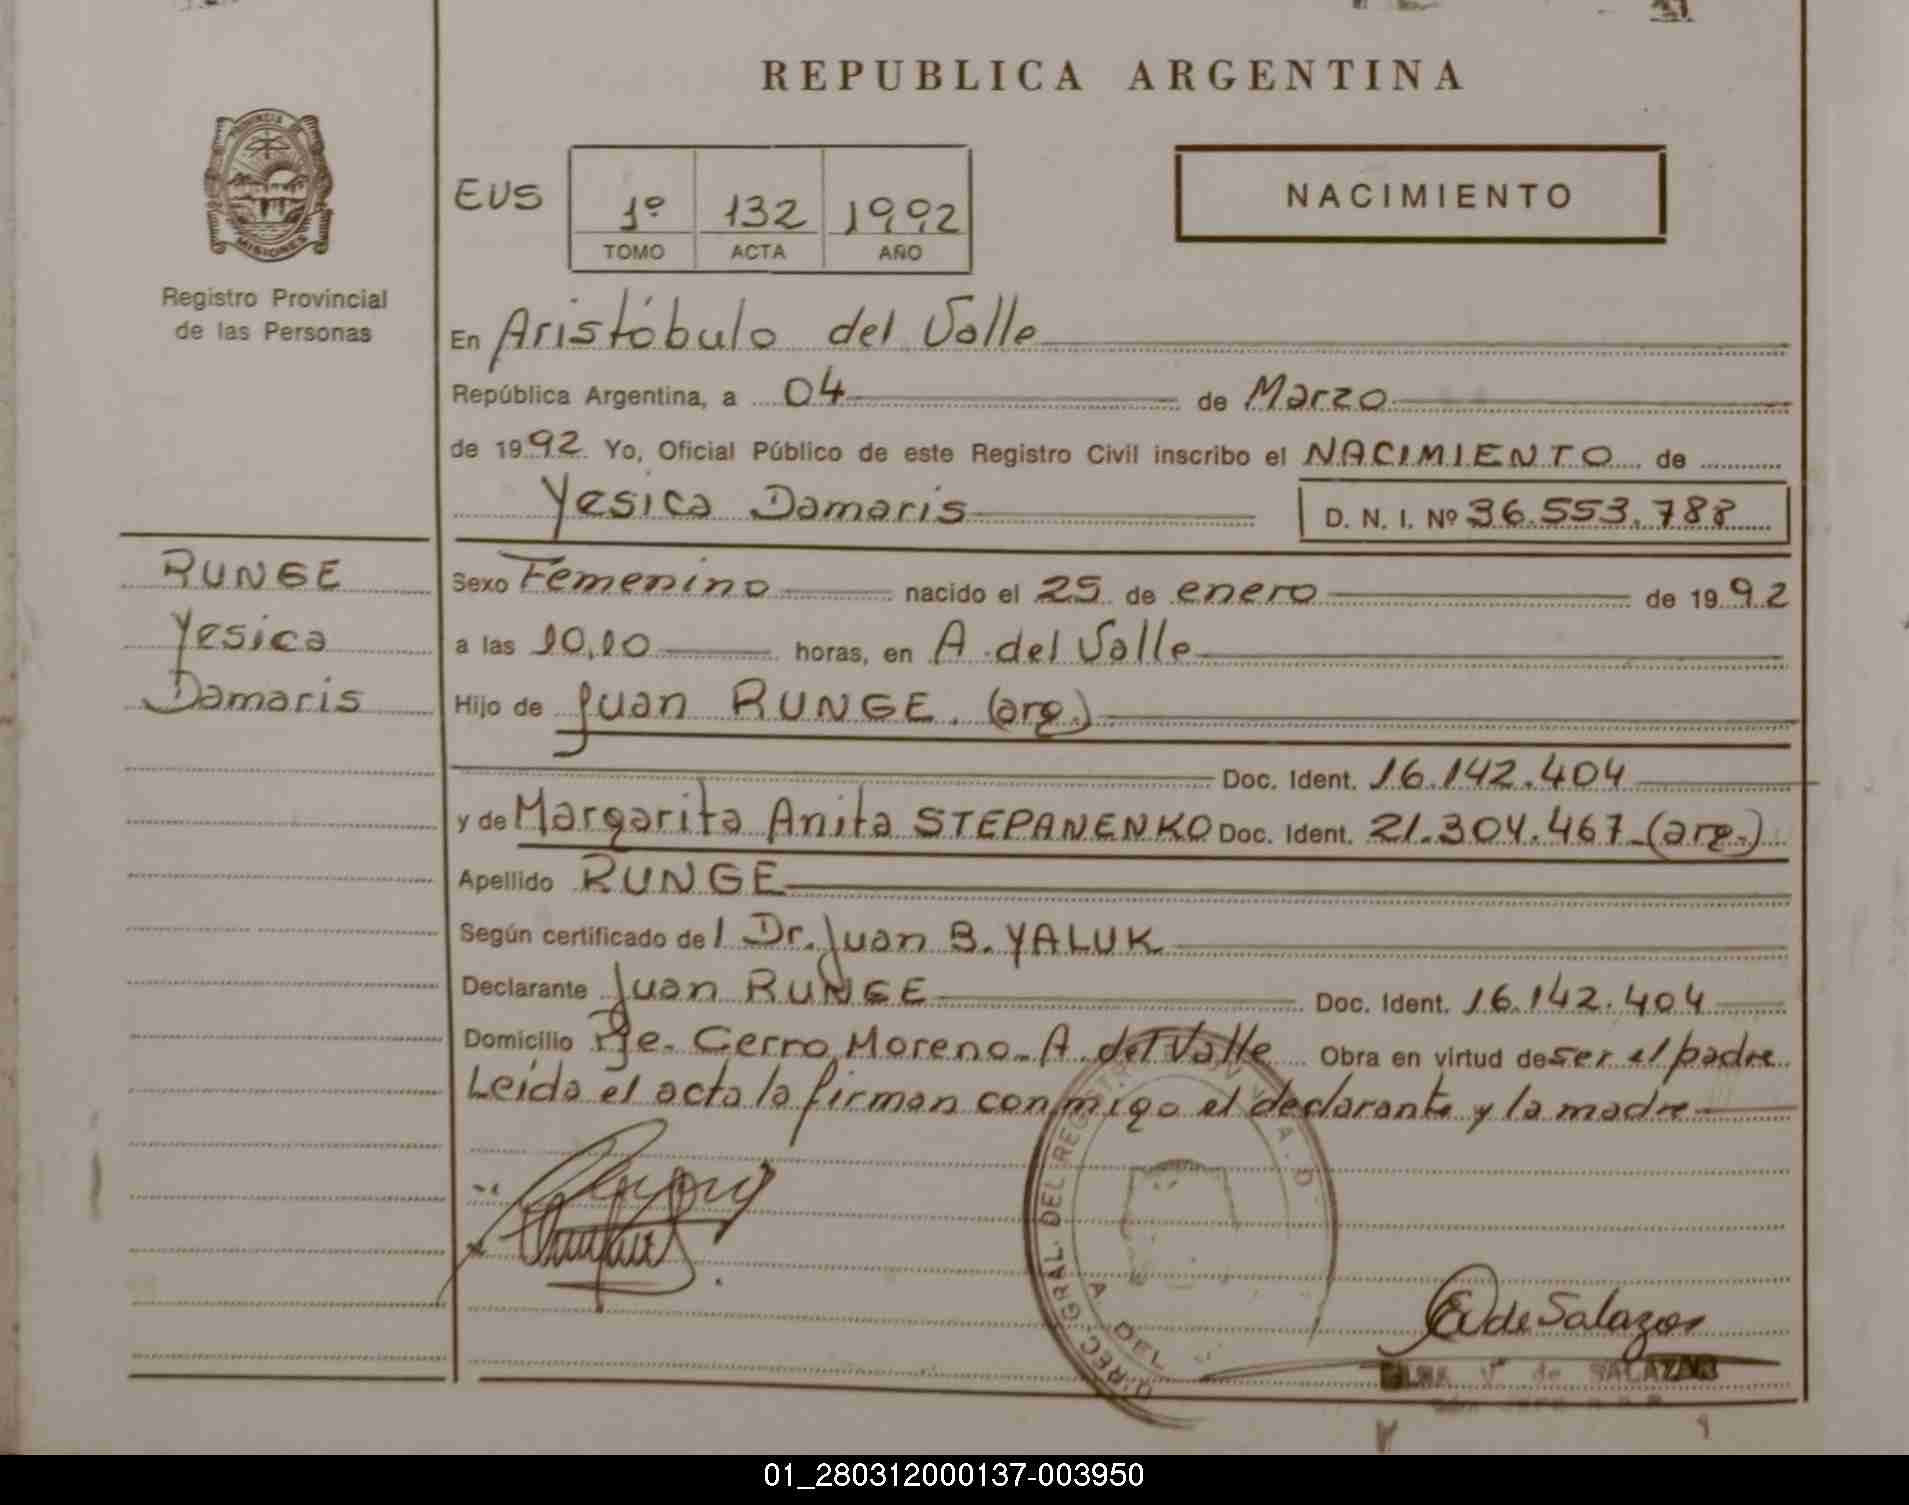 REPUBLICA ARGENTINA
PROVINCIA DE
MISIONES
Registro Provincial
de las Personas
EUS
1º 132 1992
TOMO ACTA AÑO
NACIMIENTO
En Aristóbulo del Valle
República Argentina, a 04 de Marzo
de 1992 Yo, Oficial Público de este Registro Civil inscribo el NACIMIENTO de
Yesica Damaris D. N. I. Nº 36.553.788
RUNGE
Yesica
Damaris
Sexo Femenino nacido el 25 de enero de 1992
a las 10,10 horas, en A. del Valle
Hijo de Juan RUNGE. (arg.)
Doc. Ident. 16.142.404
y de Margarita Anita STEPANENKO Doc. Ident. 21.304.467-(arg.)
Apellido RUNGE
Según certificado del Dr. Juan B. YALUK
Declarante Juan RUNGE Doc. Ident. 16.142.404
Domicilio Pje. Cerro Moreno-A. del Valle Obra en virtud de ser el padre
Leída el acta la firman conmigo el declarante y la madre
REC. GRAL. DEL
A. DEL
de Salazar
V. de SALAZAR
01_280312000137-003950